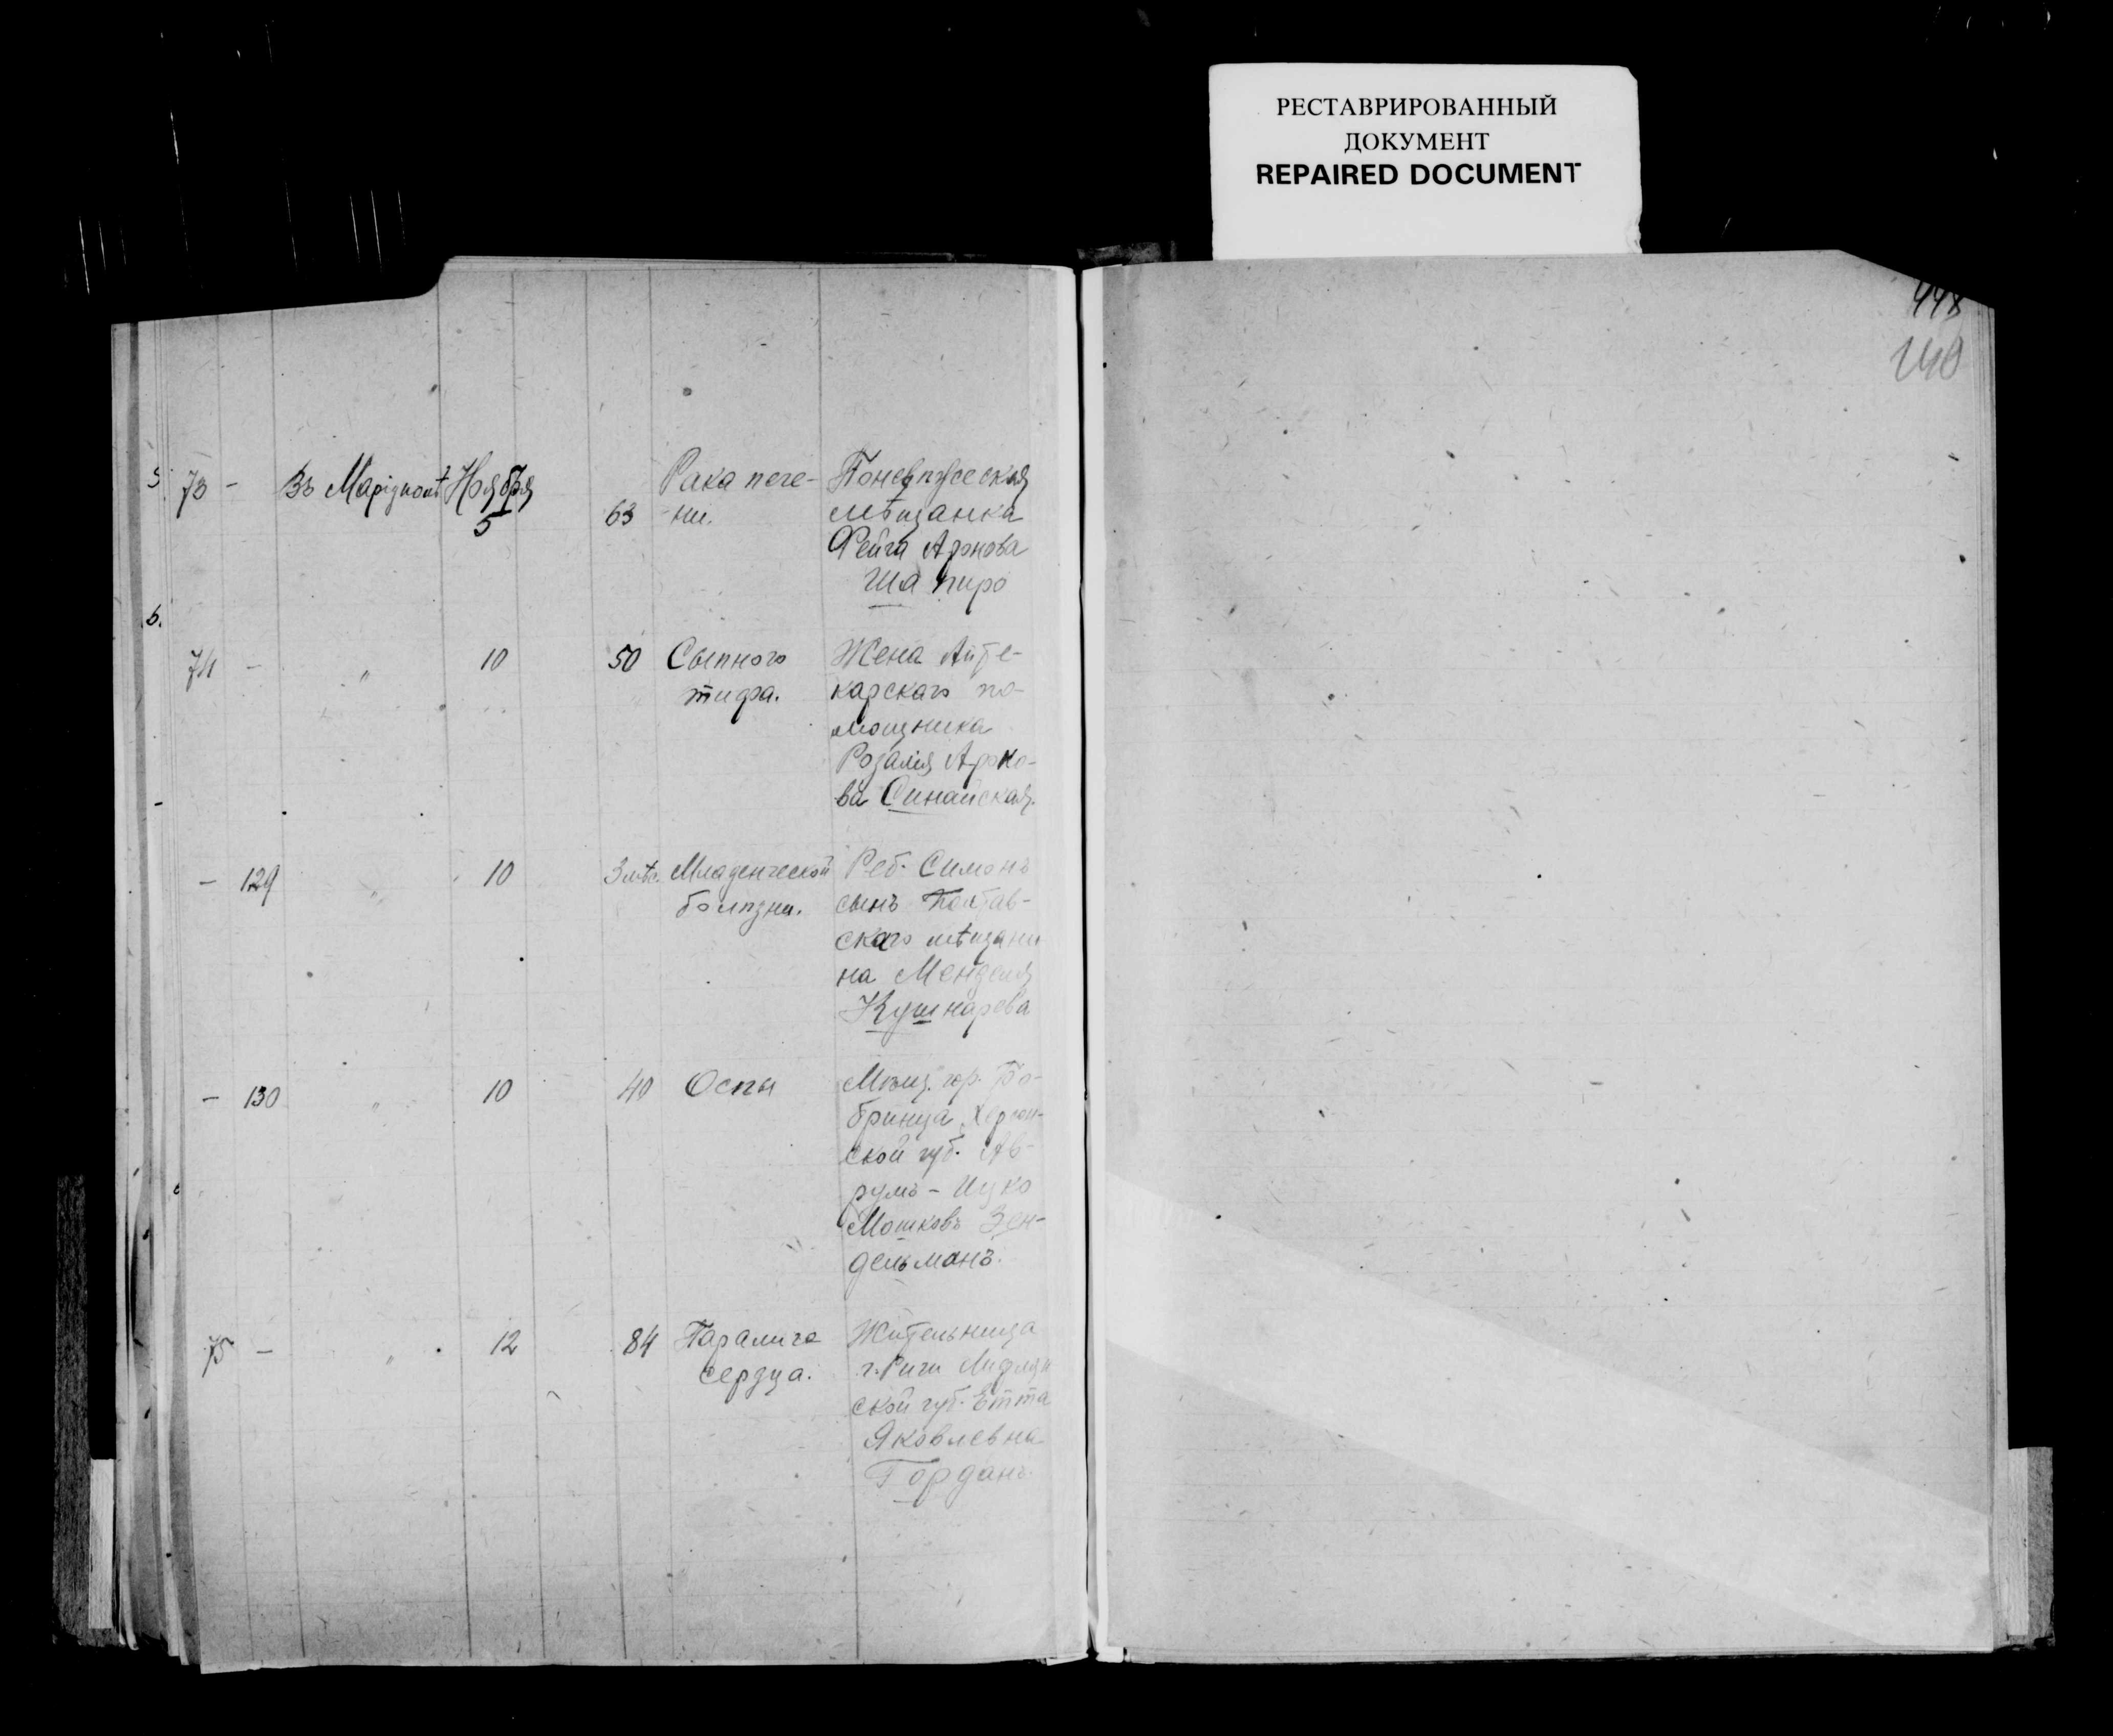 РЕСТАВРИРОВАННЫЙ
ДОКУМЕНТ
REPAIRED DOCUMENT
448
73 - Въ Маріуполѣ Ноября
5 63 Рака пече-
ни.
Поневѣжская
мѣщанка
Фейга Аронова
Шапиро
74 - " 10 50 Сыпного
тифа.
Жена Апте-
карскаго по-
мощника
Розалія Ароно-
ва Синайская.
- 129 " 10 3 мѣс. Младенческой
болѣзни.
Реб. Симонъ
сынъ Полтав-
скаго мѣщани
на Менделя
Кушнарева
- 130 " 10 40 Оспы
Мѣщ. гор. Бо-
бринца Херсон-
ской губ. Ав-
румъ - Ицко
Мошковъ Зен-
дельманъ.
75 - " 12 84 Паралича
сердца.
Жительница
г. Риги Лифлян
ской губ. Етта
Яковлевна
Горданъ